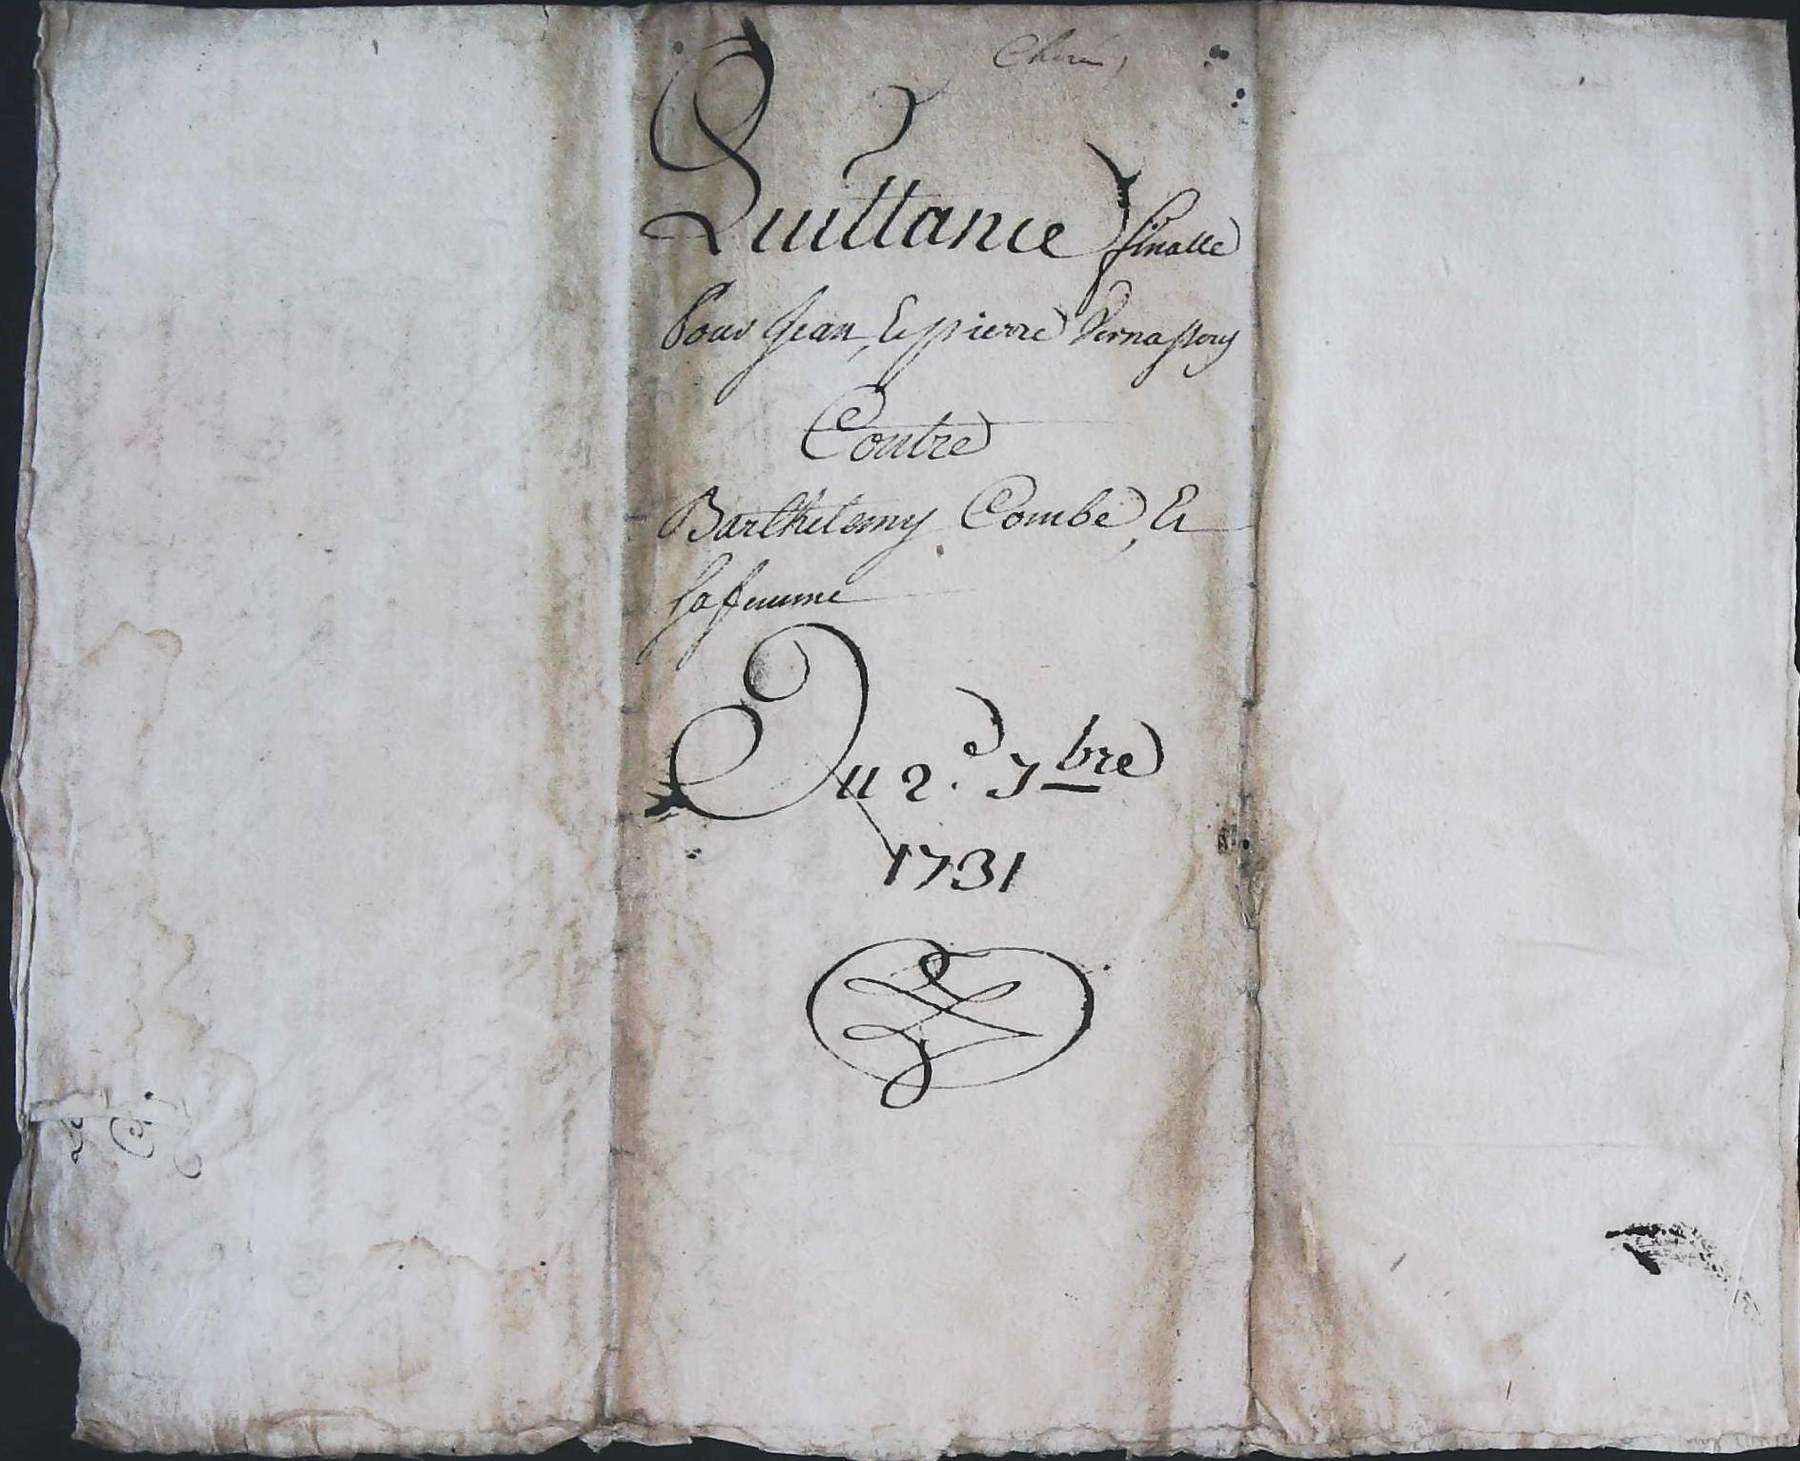 Quittance finalle
Pour Jean, Et pierre Vernassous
Contre
Barthelemy Combe, Et
Sa femme
Du 2.e 7bre
1731